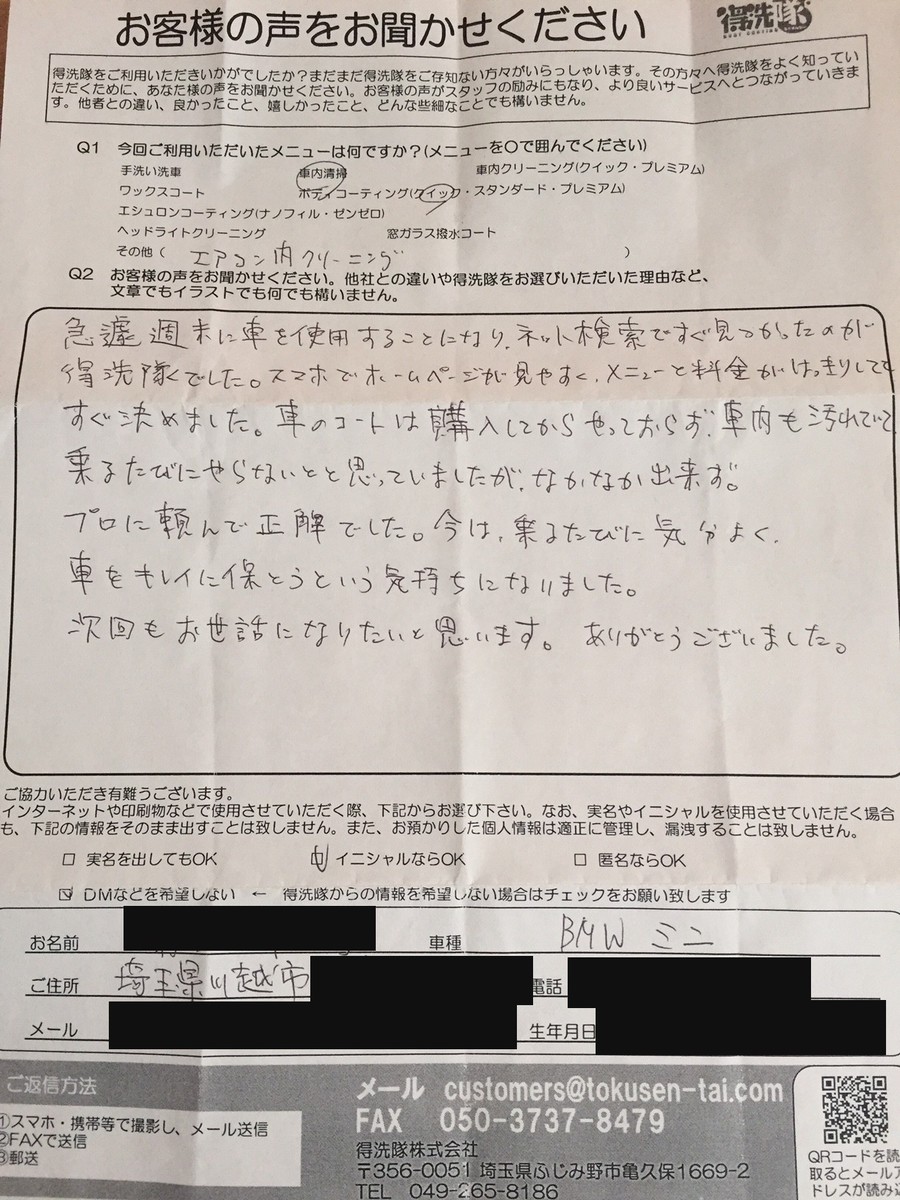 お客様の声をお聞かせください
得洗隊
得洗隊をご利用いただきいかがでしたか？まだまだ得洗隊をご存知ない方々がいらっしゃいます。その方々へ得洗隊をよく知ってい
ただくために、あなた様の声をお聞かせください。お客様の声がスタッフの励みにもなり、より良いサービスへとつながっていきま
す。他者との違い、良かったこと、嬉しかったこと、どんな些細なことでも構いません。
Q1 今回ご利用いただいたメニューは何ですか？(メニューを〇で囲んでください)
手洗い洗車 車内清掃 車内クリーニング(クイック・プレミアム)
ワックスコート ボディコーティング(クイック・スタンダード・プレミアム)
エシュロンコーティング(ナノフィル・ゼンゼロ)
ヘッドライトクリーニング 窓ガラス撥水コート
その他（ エアコン内クリーニング ）
Q2 お客様の声をお聞かせください。他社との違いや得洗隊をお選びいただいた理由など、
文章でもイラストでも何でも構いません。
急遽週末に車を使用することになり、ネット検索ですぐ見つかったのが
得洗隊でした。スマホでホームページが見やすく、メニューと料金がはっきりしてて
すぐ決めました。車のコートは購入してからやっておらず、車内も汚れていて
乗るたびにやらないとと思っていましたが、なかなか出来ず。
プロに頼んで正解でした。今は、乗るたびに気分よく、
車をキレイに保とうという気持ちになりました。
次回もお世話になりたいと思います。 ありがとうございました。
ご協力いただき有難うございます。
インターネットや印刷物などで使用させていただく際、下記からお選び下さい。なお、実名やイニシャルを使用させていただく場合
も、下記の情報をそのまま出すことは致しません。また、お預かりした個人情報は適正に管理し、漏洩することは致しません。
□ 実名を出してもOK ☑ イニシャルならOK □ 匿名ならOK
☑ DMなどを希望しない ← 得洗隊からの情報を希望しない場合はチェックをお願い致します
お名前 車種 BMW ミニ
ご住所 埼玉県川越市 電話
メール 生年月日
ご返信方法
①スマホ・携帯等で撮影し、メール送信
②FAXで送信
③郵送
メール customers@tokusen-tai.com
FAX 050-3737-8479
得洗隊株式会社
〒356-0051 埼玉県ふじみ野市亀久保1669-2
TEL 049-265-8186
QRコードを読
取るとメールア
ドレスが読み込